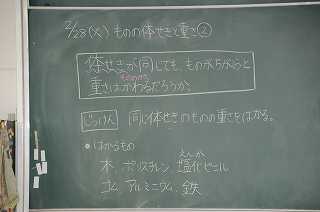 2/28(火) ものの体せきと重さ②
体せきが同じでも、ものがちがうと
ものの
重さはかわるだろうか。
じっけん 同じ体せきのものの重さをはかる。
●はかるもの
えんか
木、ポリスチレン、塩化ビニール
ゴム、アルミニウム、鉄